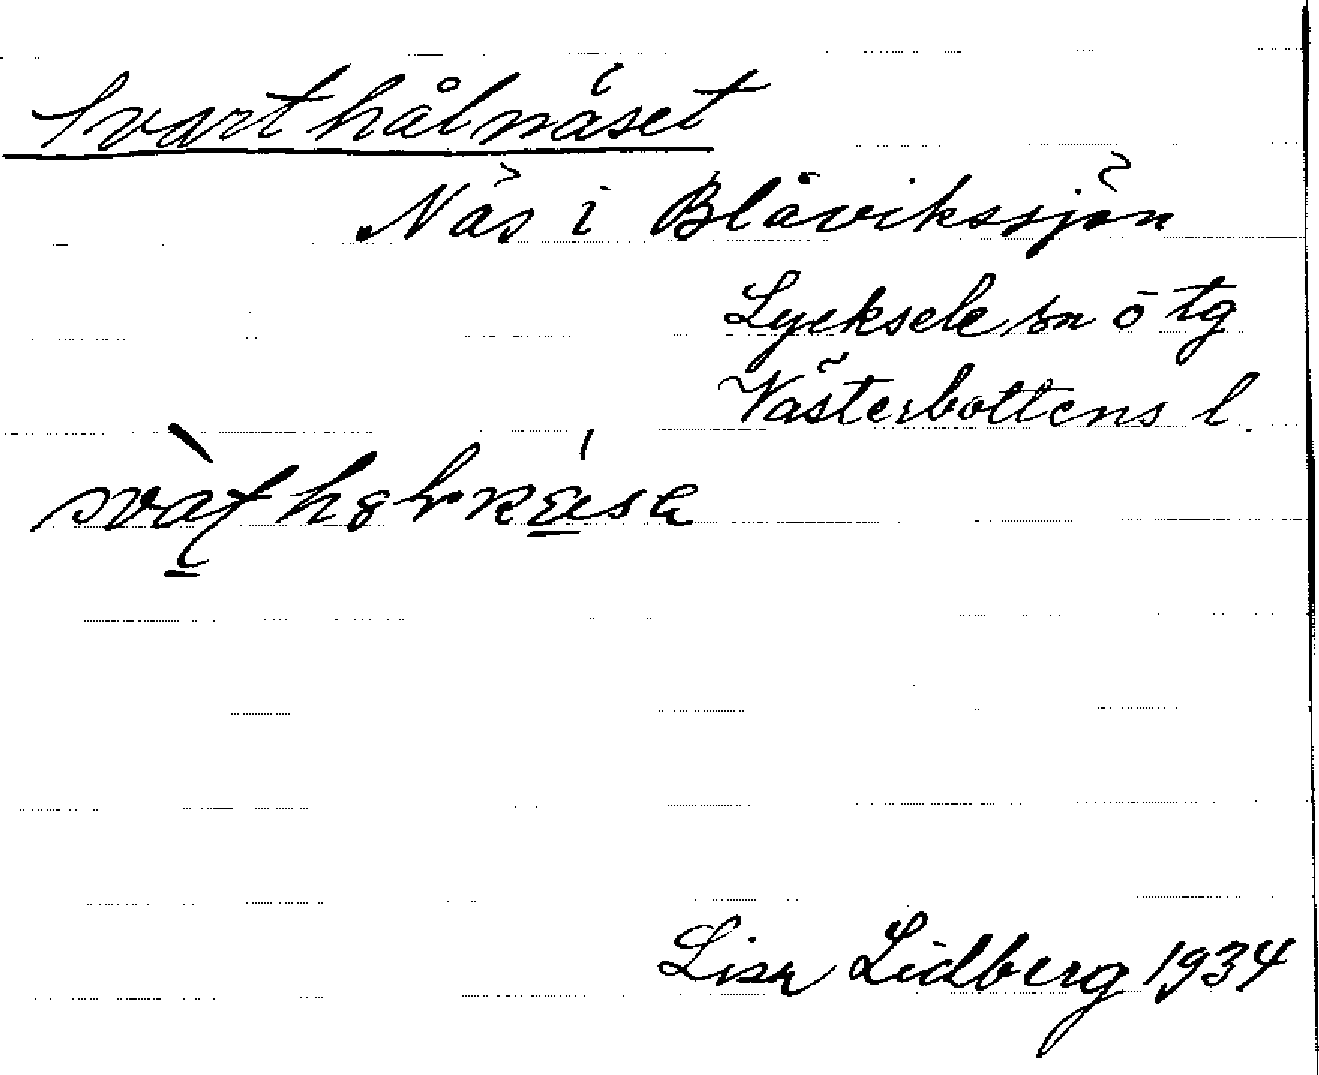 Svarthålnäset
Näs i Blåvikssjön
Lycksele sn ö tg
Västerbottens l.
Lisa Lidberg 1934